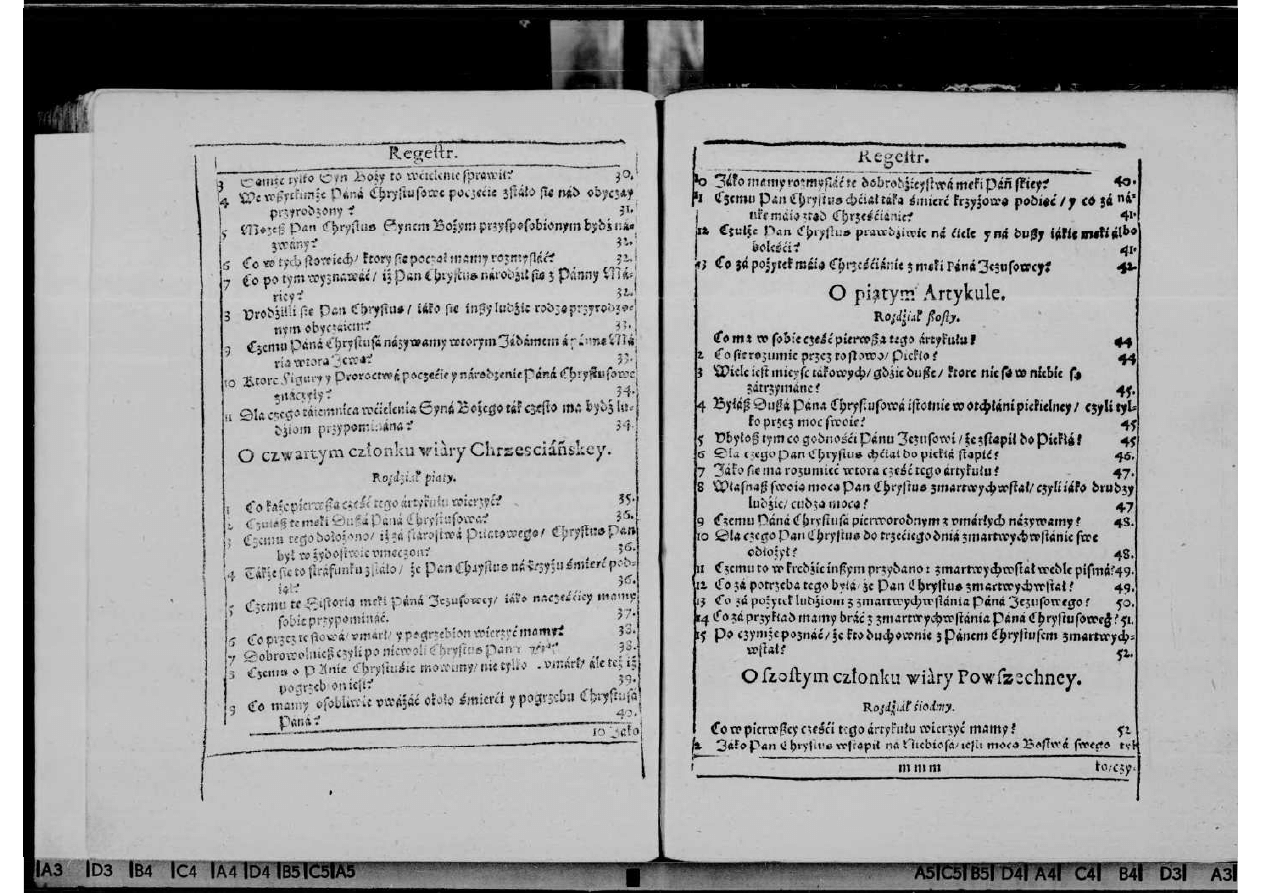 Regestr.
3 Samże tylko Syn Boży to wćielenie sprawił? 30.
4 We wßytkimże Páná Chrystusowe poczęćie zstáło się nád obyczay
przyrodzony? 31.
5 Możeß Pan Chrystus Synem Bożym przysposobionym bydź ná-
zwány? 32.
6 Co w tych słowiech/ ktory się począł mamy rozmyśláć? 32.
7 Co po tym wyznawáć/ iż Pan Chrystus národźił się z Pánny Má-
ryey? 32.
8 Vrodźiłli się Pan Chrystus/ iáko się inßy ludźie rodzą przyrodzo-
nym obyczáiem? 33.
9 Czemu Páná Chrystusá názywamy wtorym Jádámem á Pánnę Má-
ria wtorą Jewą? 33.
10 Ktore Figury y Proroctwá poczęćie y národzenie Páná Chrystusowe
znáczyły? 34.
11 Dla czego táiemnicá wćielenia Syná Bożego ták często ma bydź lu-
dźiom przypominána? 34.
O czwartym członku wiáry Chrześciáńskey.
Rozdźiał piąty.
1 Co każe pierwßa część tego ártykułu wierzyć? 35.
2 Czułáß te męki Dußá Páná Chrystusowá? 36.
3 Czemu tego dołożono/ iż zá stárostwá Piłatowego/ Chrystus Pan
był w żydostwie vmęczon? 36.
4 Tákże się to z tráfunku zstáło/ że Pan Chrystus ná krzyżu śmierć pod-
iął? 36.
5 Czemu tę Historią męki Páná Jezusowey/ iáko naczęśćiey mamy
sobie przypomináć. 37.
6 Co przez te słowá/ vmárł/ y pogrzebion wierzyć mamy? 38.
7 Dobrowolnieß czyli po niewoli Chrystus Pan 38.
8 Czemu o Pánie Chrystuśie mowimy/ nie tylko vmárł/ ále też iż
pogrzebion iest? 39.
9 Co mamy osobliwie vważáć około śmierći y pogrzebu Chrystusá
Páná? 40.
10 Jáko
Regestr.
10 Jáko mamy rozmyśláć te dobrodźieystwá męki Páńskiey? 40.
11 Czemu Pan Chrystus chćiał táką śmierć krzyżową podiąć/ y co zá ná-
ukę máią ztąd Chrześćiánie? 41.
12 Czułże Pan Chrystus prawdźiwie ná ćiele y ná dußy iákie męki álbo
boleśći? 41.
13 Co zá pożytek máią Chrześćiánie z męki Páná Jezusowey? 42
O piątym Artykule.
Rozdźiał ßosty.
Co ma w sobie część pierwßa tego ártykułu? 44
2 Co się rozumie przez to słowo/ Piekło? 44
3 Wiele iest mieysc tákowych/ gdźie duße/ ktore nie są w niebie są
zátrzymáne? 45.
4 Byłáß Dußá Páná Chrystusowá istotnie w otchłáni piekielney/ czyli tyl-
ko przez moc swoię? 45
5 Vbyłoß tym co godnośći Pánu Jezusowi/ że zstąpił do Piekłá? 45
6 Dla czego Pan Chrystus chćiał do piekłá stąpić? 46.
7 Jáko się ma rozumieć wtora część tego ártykułu? 47.
8 Własnąß swoią mocą Pan Chrystus zmartwychwstał/ czyli iáko drudzy
ludźie/ cudzą mocą? 47
9 Czemu Páná Chrystusá pierworodnym z vmárłych názywamy? 48.
10 Dla czego Pan Chrystus do trzećiego dniá zmartwychwstánie swe
odłożył? 48.
11 Czemu to w kredźie inßym przydano: zmartwychwstał wedle pismá? 49.
12 Co zá potrzebá tego byłá/ że Pan Chrystus zmartwychwstał? 49.
13 Co zá pożytek ludźiom z zmartwychwstánia Páná Jezusowego? 50.
14 Co zá przykład mamy bráć z zmartwychwstánia Páná Chrystusoweg? 51.
15 Po czymże poznáć/ że kto duchownie z Pánem Chrystusem zmartwych-
wstał? 52.
O szostym członku wiáry Powszechney.
Rozdźiał śiodmy.
Co w pierwßey częśći tego ártykułu wierzyć mamy? 52
2 Jáko Pan Chrystus wstąpił ná Niebiosá/ iesli mocą Bostwá swego tyl
m m m ko/czy-